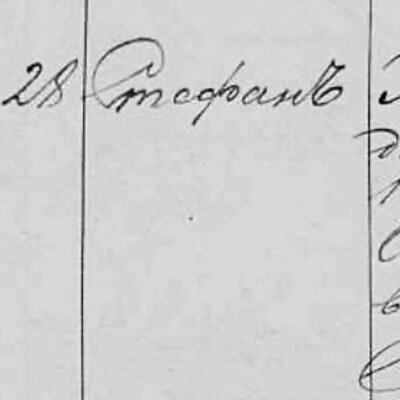 28 Стефанъ